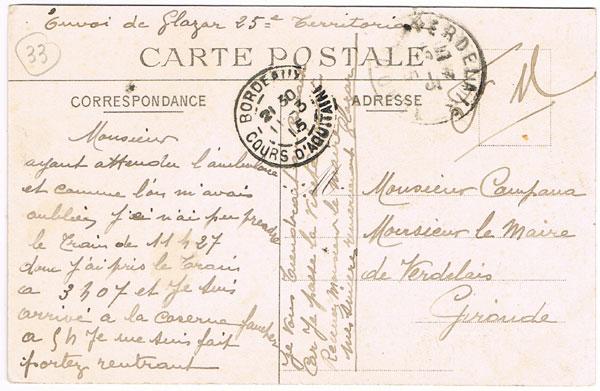 Envoi de Glazar 25e Territorial
33
CARTE POSTALE
CORRESPONDANCE
ADRESSE
BORDEAUX
21 30
1 3
15
COURS D'AQUITAINE
VERDELAIS
M
Monsieur
ayant attendu l'ambulance
et comme l'on m'avais
oublier, je n'ai peu prendre
le Train de 11 h 27
donc j'ai pris le Train
a 3 h 07 et Je suis
arrivé a la Caserne faucher
a 5 h Je me suis fait
portez rentrant
Je vous tiendrai
Car Je passe la visite
Recevez Monsieur le Maire
mes sincères remerciements Glazar
Monsieur Campana
Monsieur le Maire
de Verdelais
Gironde